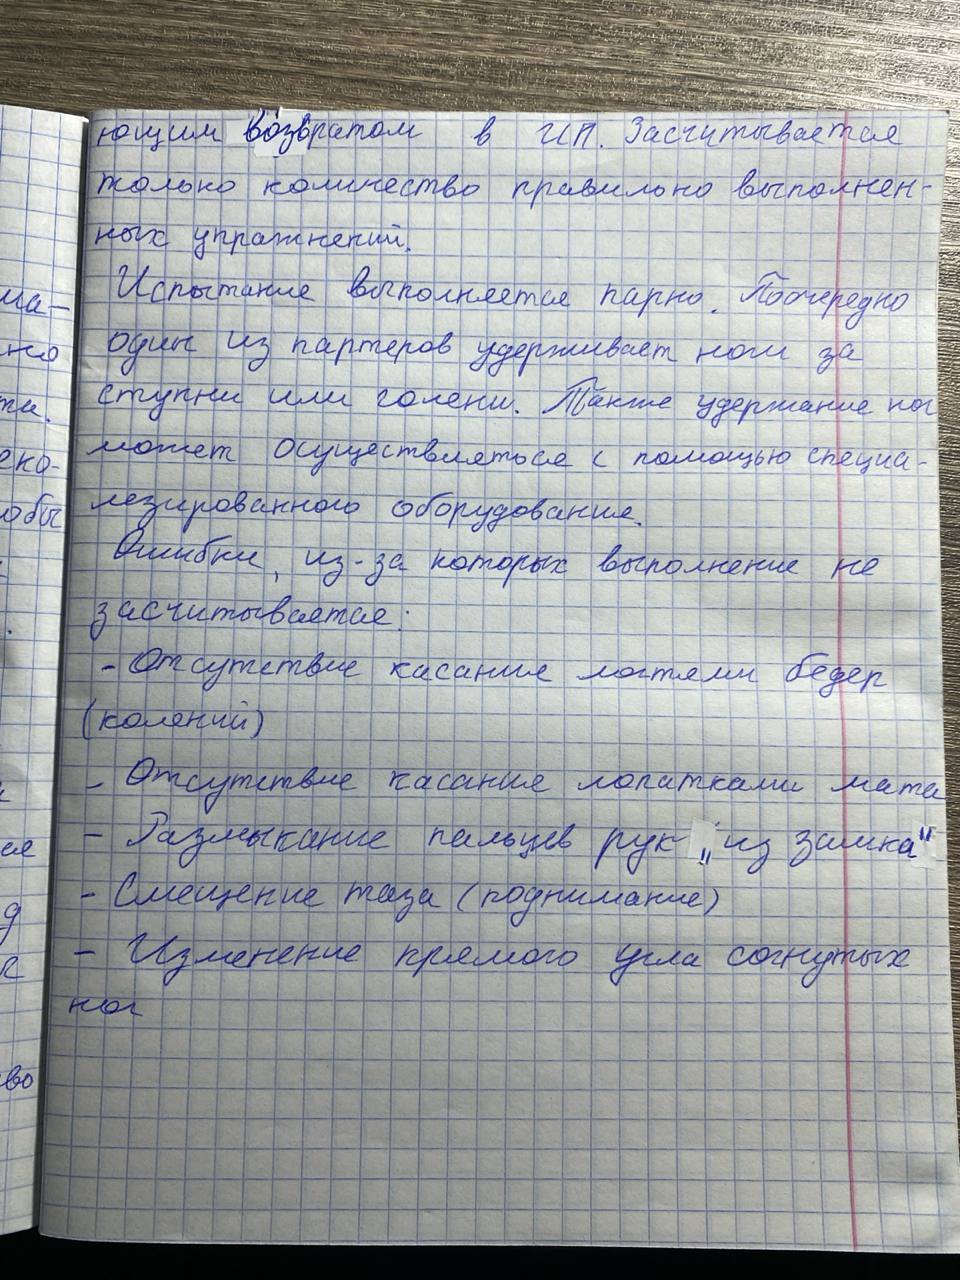 ющим возвратом в ИП. Засчитывается
только количество правильно выполнен-
ных упражнений.
Испытание выполняется парно. Поочередно
один из партеров удерживает ноги за
ступни или голени. Также удержание ног
может осуществляться с помощью специа-
лезированного оборудования.
Ошибки, из-за которых выполнение не
засчитывается:
- Отсутствие касания локтями бедер
(колений)
- Отсутствие касания лопатками мата
- Размыкание пальцев рук „из замка"
- Смещение таза (поднимание)
- Изменение прямого угла согнутых
ног